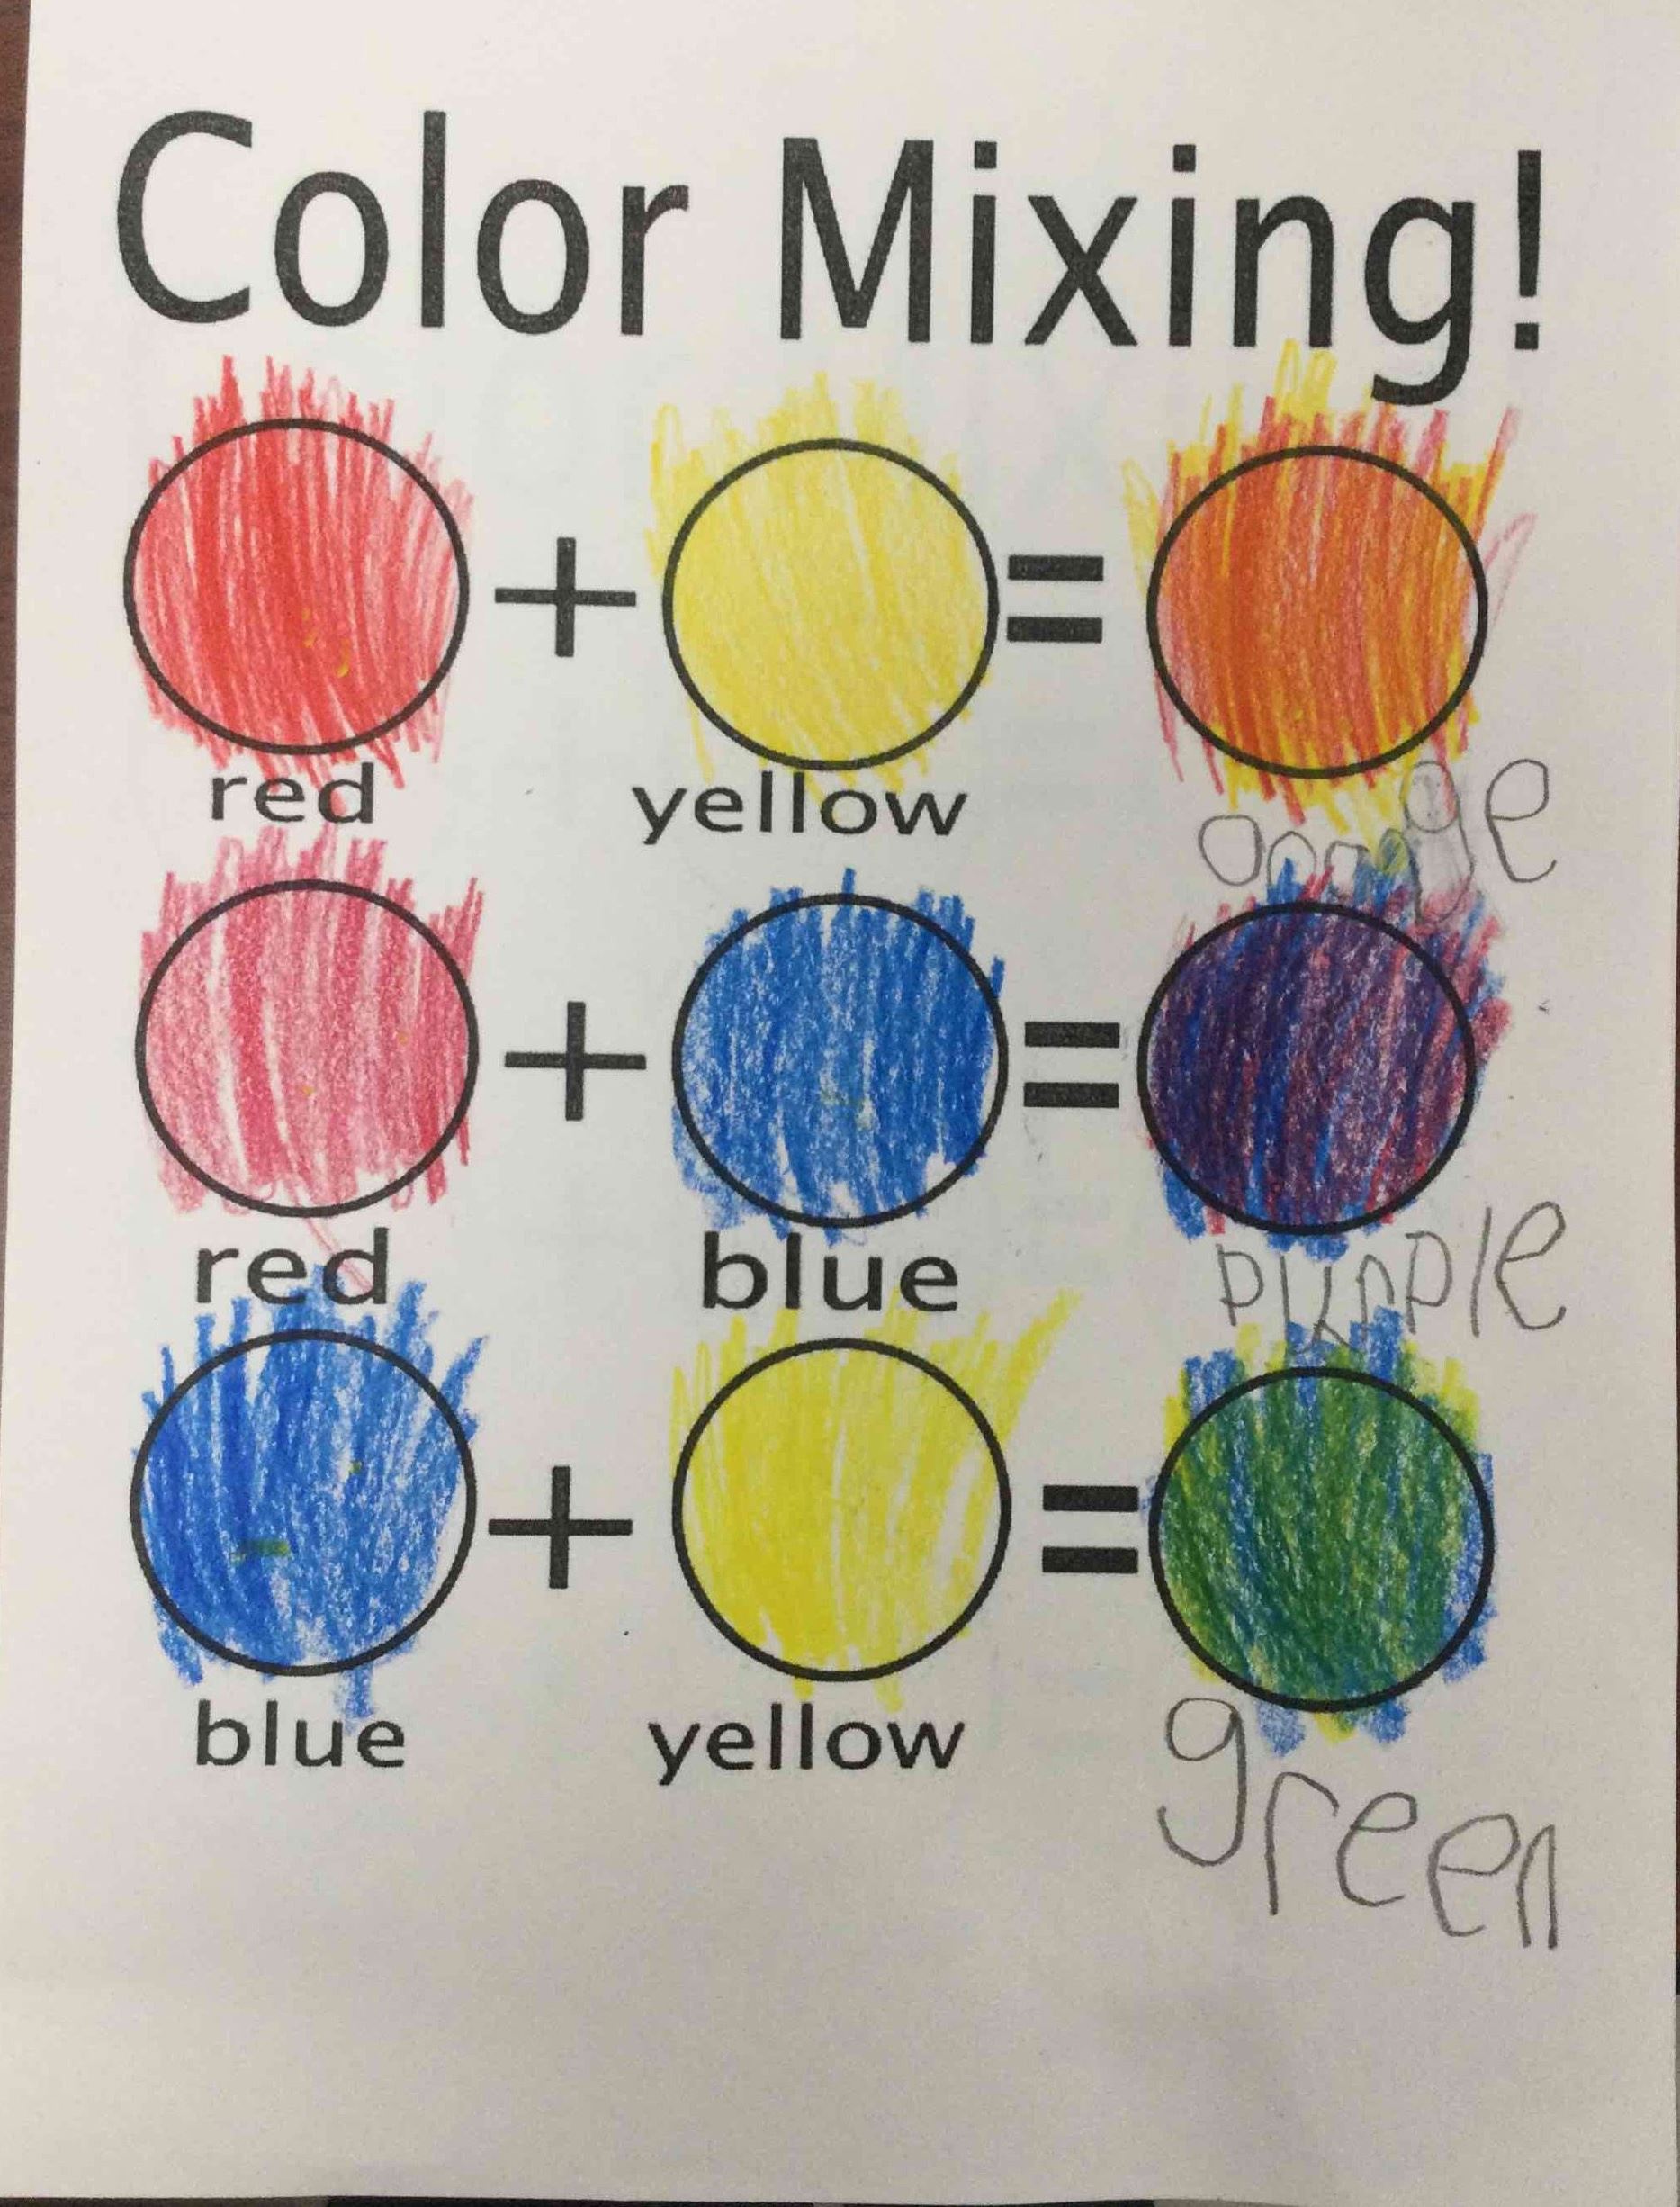 Color Mixing!
+ =
red yellow orange
+ =
red blue purple
+ =
blue yellow green